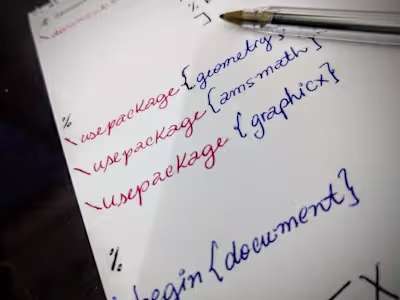 %
]
%
\usepackage{geometry}
\usepackage{amsmath}
\usepackage{graphicx}
%
\begin{document}